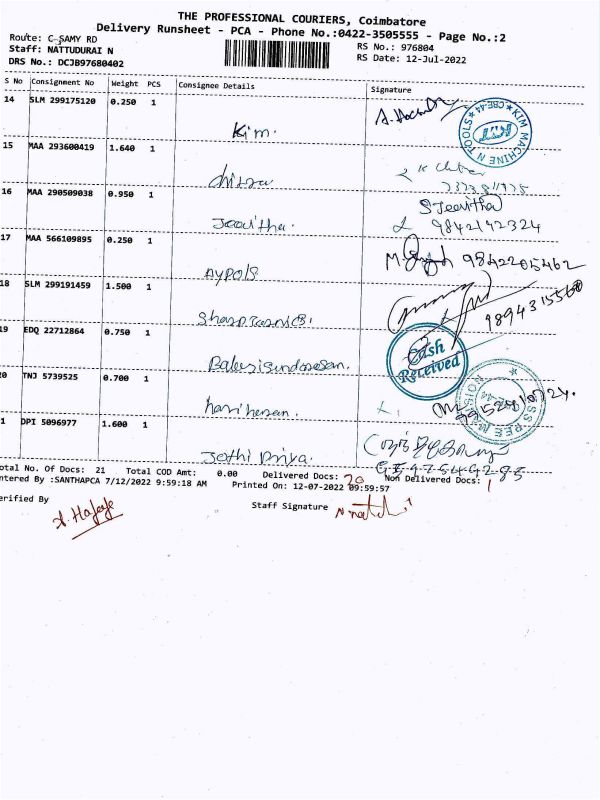 THE PROFESSIONAL COURIERS, Coimbatore
Delivery Runsheet - PCA - Phone No.:0422-3505555 - Page No.:2
Route: C SAMY RD
Staff: NATTUDURAI N
DRS No.: DCJB97680402
RS No.: 976804
RS Date: 12-Jul-2022
S No Consignment No Weight PCS Consignee Details Signature
14 SLM 299175120 0.250 1
Kim.
KIM MACHINE N TOOLS ★ CBE-44 ★
KTT
15 MAA 293600419 1.640 1
chitra
16 MAA 290509038 0.950 1
Jeevitha.
S Jeevitha
9842192324
17 MAA 566109895 0.250 1
Aypols
9842205462
18 SLM 299191459 1.500 1
9894315560
19 EDQ 22712864 0.750 1
Cash
Received
0 TNJ 5739525 0.700 1
hariharan.
1 DPI 5096977 1.600 1
Jothi Priya.
otal No. Of Docs: 21 Total COD Amt: 0.00 Delivered Docs: 20 Non Delivered Docs: 1
ntered By :SANTHAPCA 7/12/2022 9:59:18 AM Printed On: 12-07-2022 09:59:57
erified By
Staff Signature